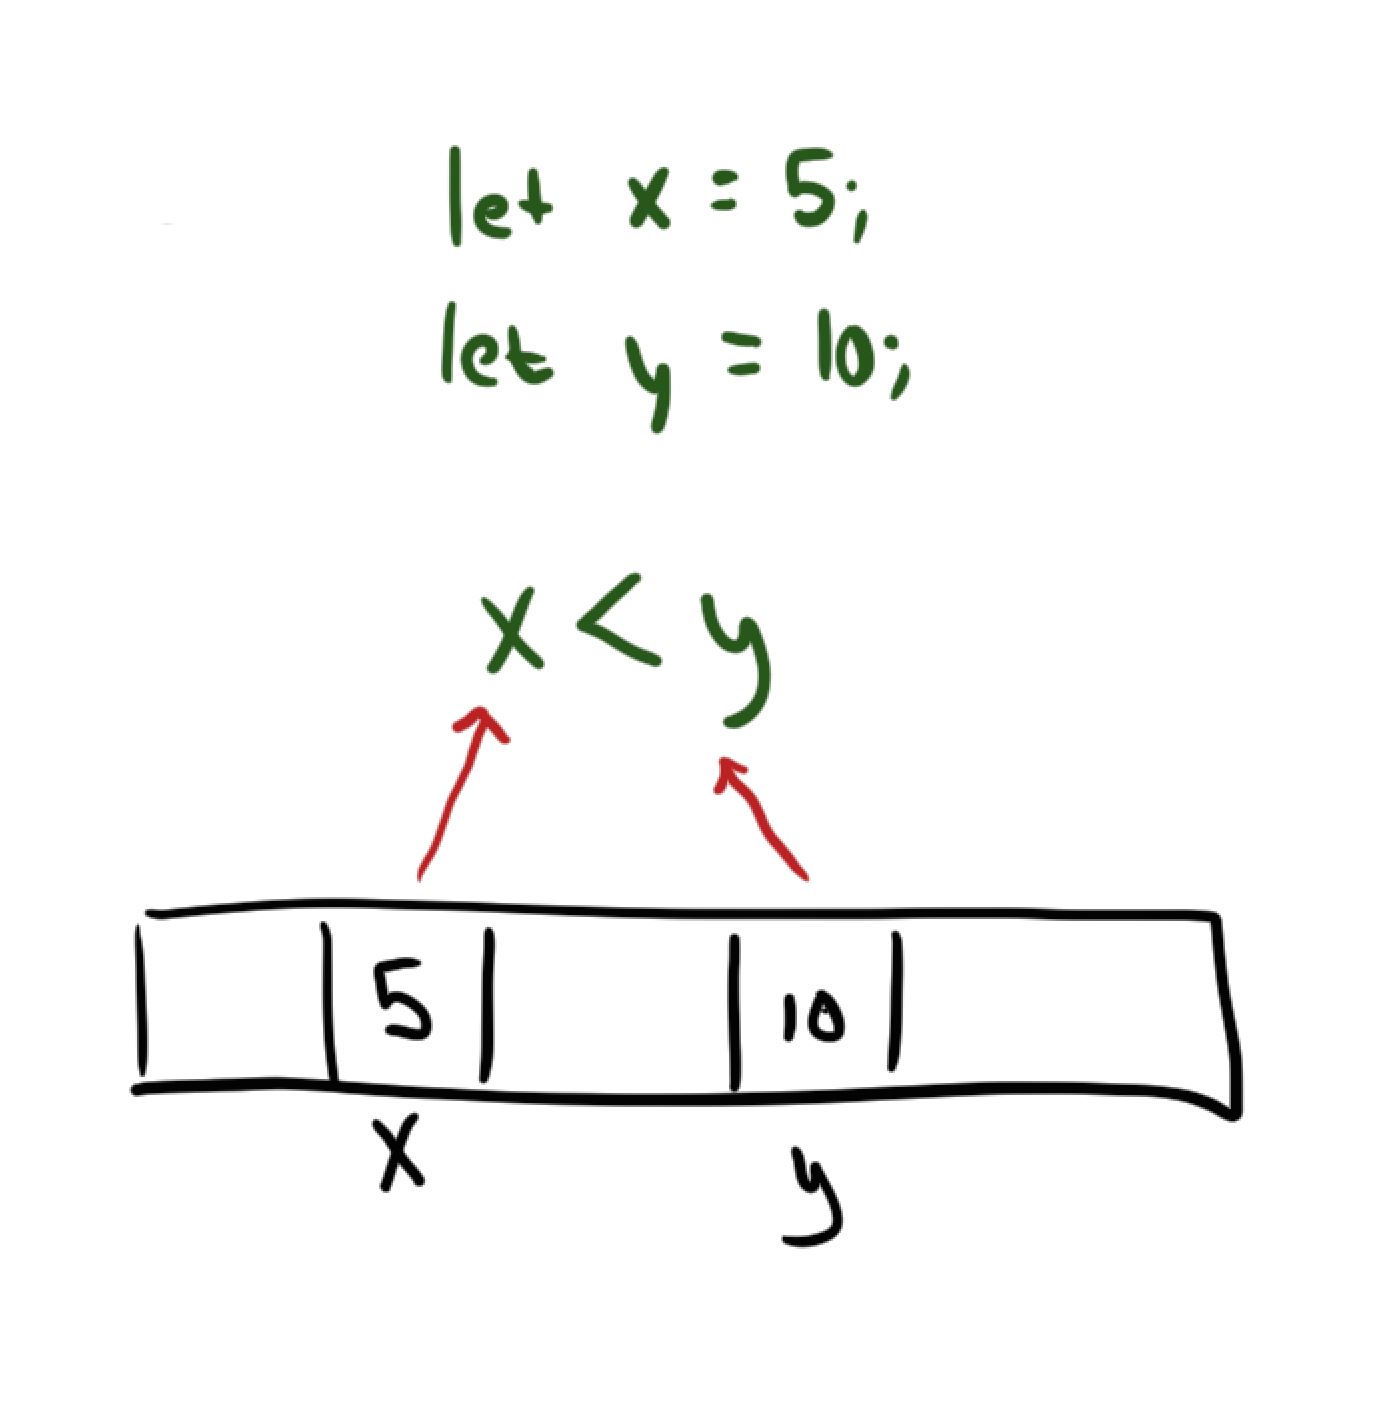 let x = 5;
let y = 10;
x < y
5 10
x y